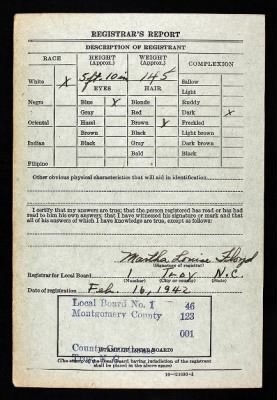 REGISTRAR'S REPORT
DESCRIPTION OF REGISTRANT
RACE HEIGHT (Approx.) WEIGHT (Approx.) COMPLEXION
White X 5 ft. 10 in 145 Sallow
EYES HAIR Light
Negro Blue X Blonde Ruddy
Gray Red Dark X
Oriental Hazel Brown X Freckled
Brown Black Light brown
Indian Black Gray Dark brown
Bald Black
Filipino
Other obvious physical characteristics that will aid in identification
I certify that my answers are true; that the person registered has read or has had
read to him his own answers; that I have witnessed his signature or mark and that
all of his answers of which I have knowledge are true, except as follows:
Martha Louise Floyd
(Signature of registrar)
Registrar for Local Board 1 Troy N.C.
(Number) (City or county) (State)
Date of registration Feb. 16, 1942
Local Board No. 1 46
Montgomery County 123
001
County Court House
(STAMP OF LOCAL BOARD)
(The stamp of the Local Board having jurisdiction of the registrant
shall be placed in the above space)